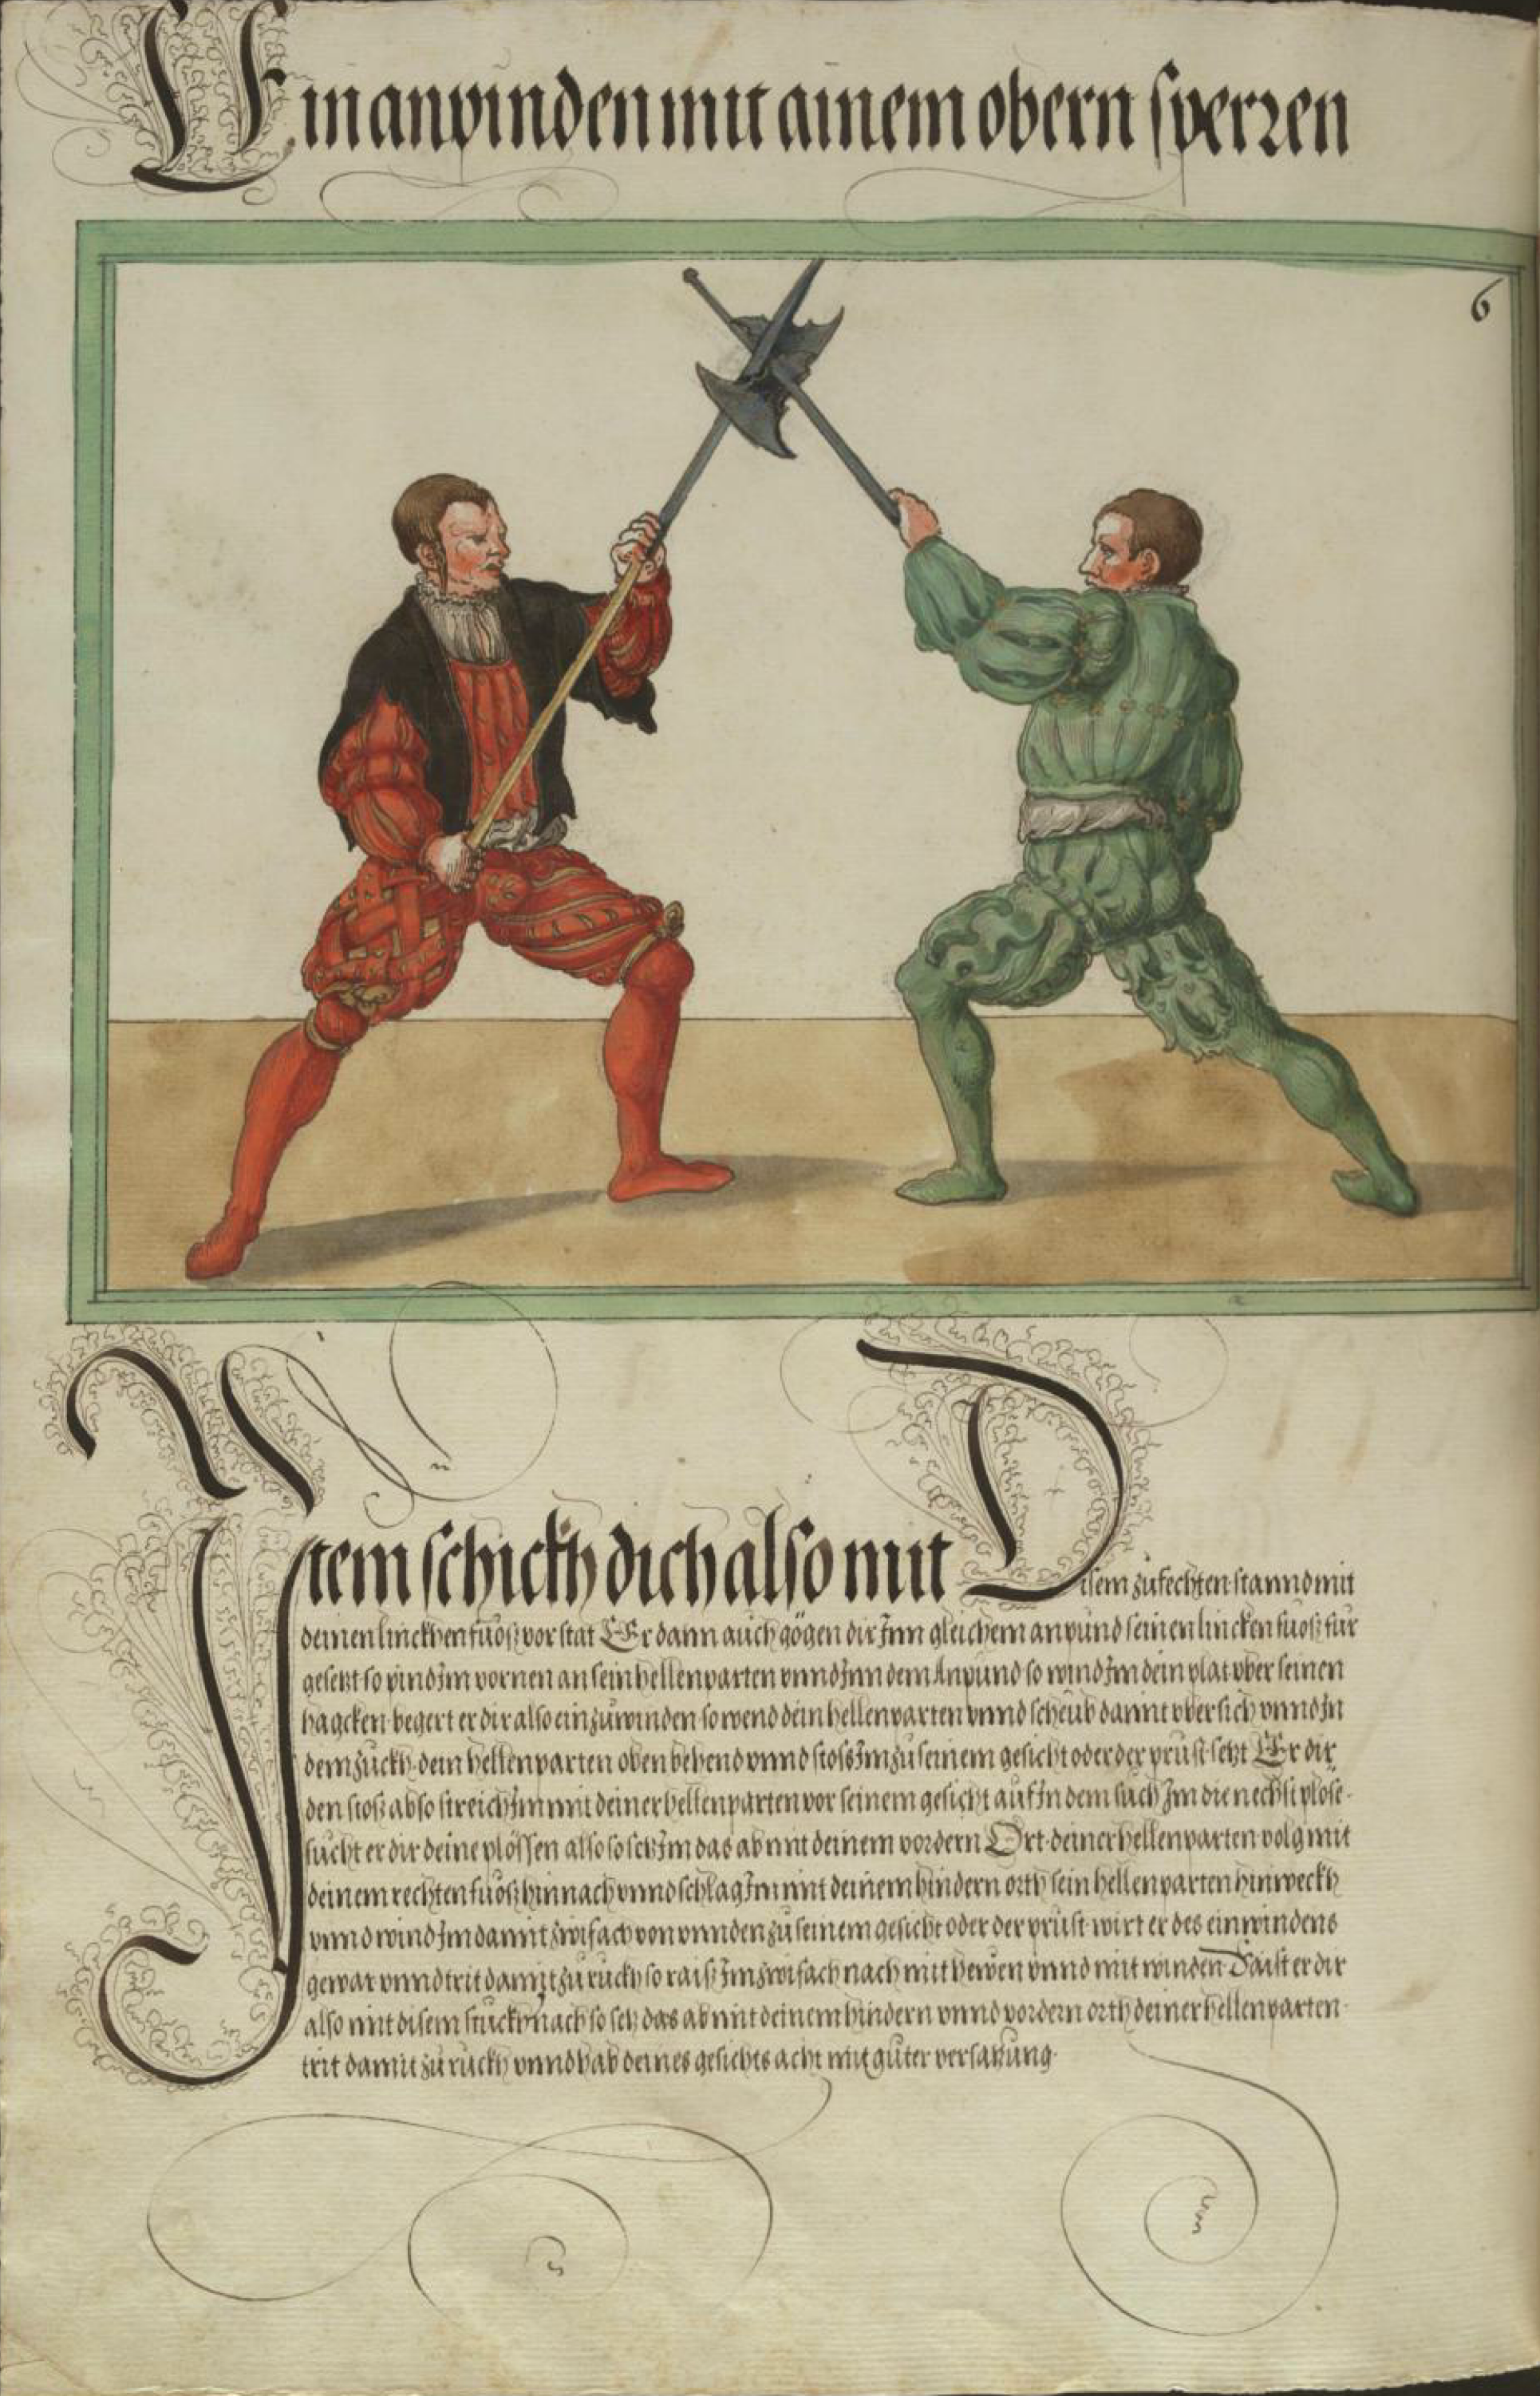 Ein anpinden mit ainem obern sperren
6
Item schickh dich also mit Disem zufechten stannd mit
deinen linckhen fuoß vor stat Er dann auch gögen dir Inn gleichem anpund seinen lincken fuoß für
gesetzt so pind Im vornen an sein hellenparten vnnd Inn dem Anpund so wind Im dein plat vber seinen
hagcken begert er dir also ein zuwinden so wend dein hellenparten vnnd scheub damit vbersich vnnd In
dem zuckh dein hellenparten oben behend vnnd stoss Im zu seinem gesicht oder der prust setzt Er dir
den stoß ab so streich Im mit deiner hellenparten vor seinem gesicht auf In dem such Im die nechst plöse
sucht er dir deine plössen also so setz Im das ab mit deinem vordern Ort deiner hellenparten volg mit
deinem rechten fuoß hinnach vnnd schlag Im mit deinem hindern orth sein hellenparten hinweckh
vnnd wind Im damit zwifach von vnnden zu seinem gesicht oder der prust wirt er des einwindens
gewar vnnd trit damit zu ruckh so raiß Im zwifach nach mit hewen vnnd mit winden Raist er dir
also mit disem stuckh nach so setz das ab mit deinem hindern vnnd vordern orth deiner hellenparten
trit damit zu ruckh vnnd hab deines gesichts acht mit guter versatzung